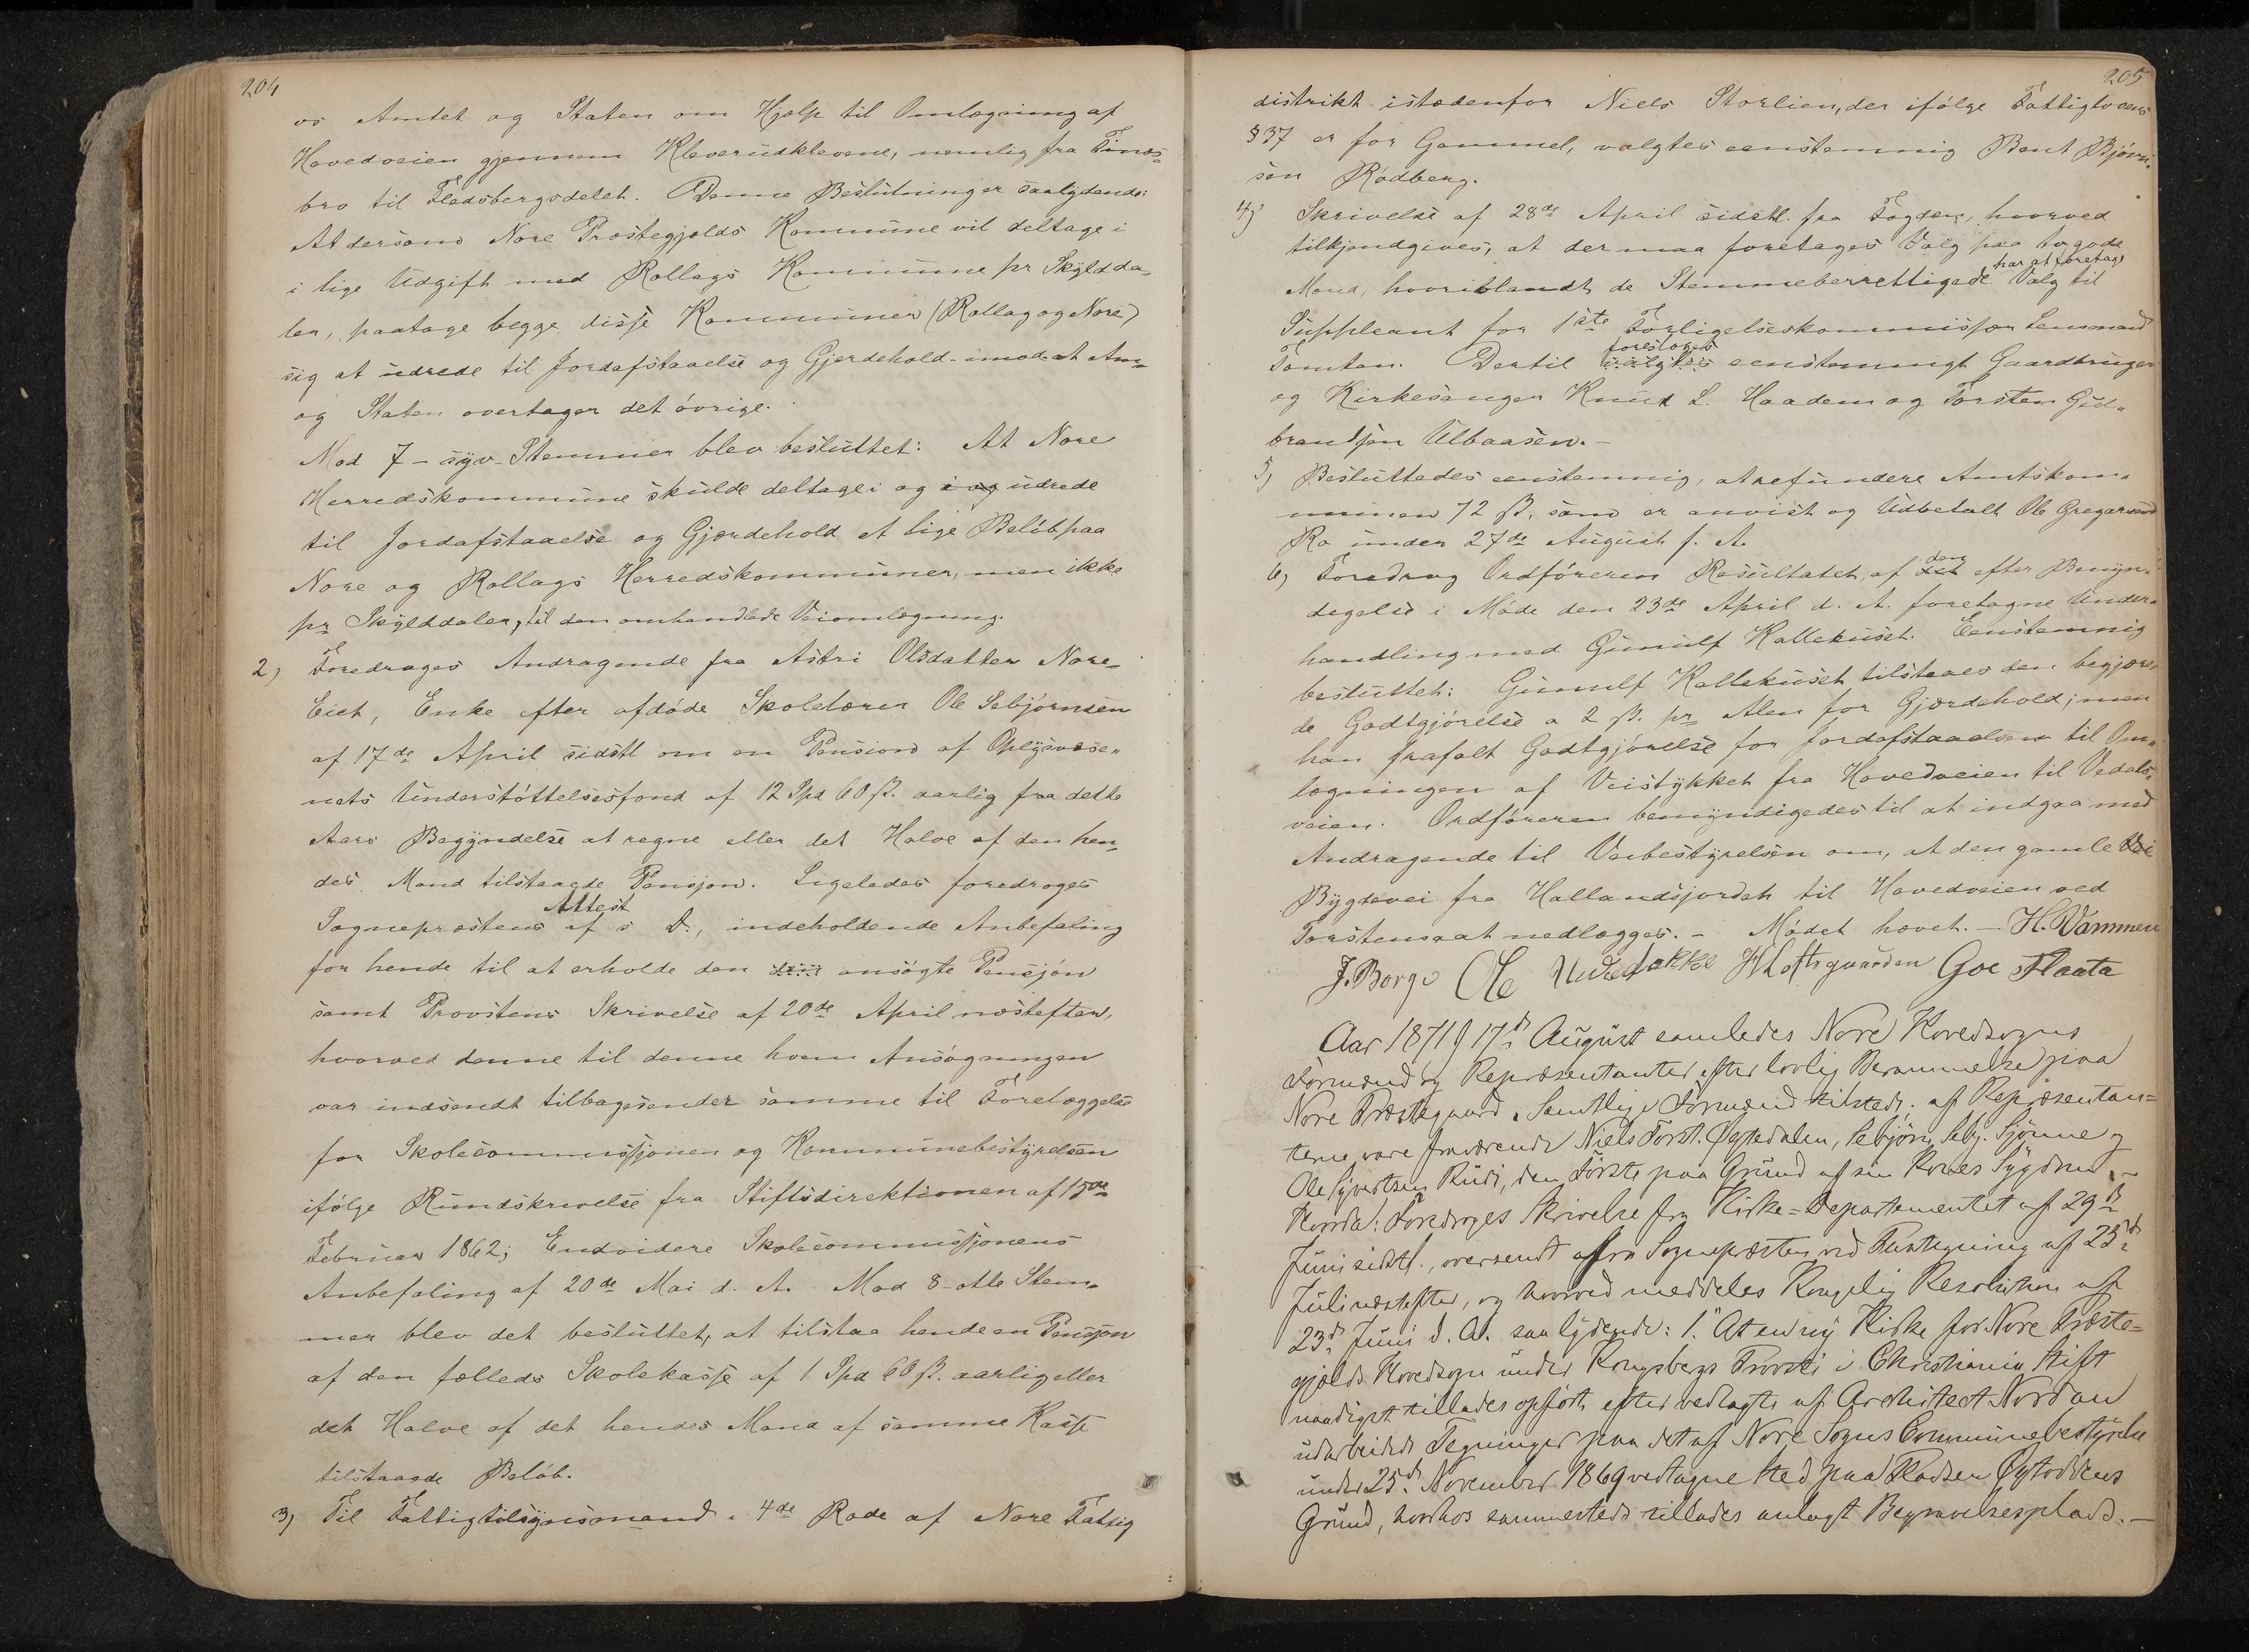 204
os Amtet og Staten om Hjælp til Omlægning af
Hovedveien gjennem Kleverudklevene, nemlig fra Finæs-
bro til Flesbergsdelet. Denne Beslutning er saalydende:
At dersom Nore Præstegjælds Kommune vil deltage i
i lige Udgift med Rollags Kommune pr Skyldda-
ler, paatage begge disse Kommuner (Rollag og Nore)
sig at udrede til Jordafstaaelse og Gjerdehold - imod at Am-
og Staten overtager det óvrige.
Mod 7 - syv - Stemmer blev besluttet: At Nore
Herredskommune skulde deltage i og i og udrede
til Jordafstaaelse og Gjærdehold et lige Belób paa
Nore og Rollags Herredskommuner, men ikke
pr Skylddaler, til den omhandlede Veiomlægning.
2, Foredroges Andragende fra Astri Olsdatter Nore-
Eiet, Enke efter afdóde Skolelærer Ole Sebjórnsen
af 17de April sidstl om en Pension af Oplysvæse-
nets Understóttelsesfond af 12 Spd 60 ß. aarlig fra dette
Aars Begyndelse at regne eller det Halve af den hen-
des Mand tilstaaede Pensjon. Ligeledes foredroges
Sognepræstens Attest af s D., indeholdende Anbefaling
for hende til at erholde den ansógte Pensjón
samt Provstens Skrivelse af 20de April næstefter,
hvorved denne til denne ham Ansógningen
var indsendt tilbagesender samme til Forelæggelse
for Skolecommissjonen og Kommunebestyrelsen
ifólge Rundskrivelse fra Stiftsdirektionen af 15de
Februar 1862; Endvidere Skolecommissjonens
Anbefaling af 20de Mai d. A. Mod 8 - otte Stem-
mer blev det besluttet, at tilstaa hende en Pensjon
af den fælleds Skolekasse af 1 Spd 60 ß. aarlig eller
det Halve af det hendes Mand af samme Kasse
tilstaaede Belób.
3, Til Fattigtilsynsmand i 4de Rode af Nore Fattig
205
distrikt istædenfor Niels Storlien, der ifólge Fattiglovens
§ 37 er for Gammel, valgtes eenstemmig Bent Bjórn-
sen Ródberg.
4, Skrivelse af 28de April sidstl. fra Fogden, hvorved
tilkjendgives, at der maa foretages Valg paa to gode
Mænd, hvoriblandt de Stemmeberrettigede har at foretage Valg til
Suppleant for 1ste Forligelseskommissær Lensmand
Tomten. Dertil foresloges valgtes eenstemmigt Gaardbruger
og Kirkesanger Knud L. Haadem og Torsten Gud-
brandsen Ulbaasen. -
5, Besluttedes eenstemmig, at refundere Amtskom-
munen 72 ß, som er anvist og Udbetalt Ole Gregarsen
Ra under 27de August f. A.
6, Foredrog Ordfóreren Resultatet af det den efter Bemyn-
digelse i Móde den 23de April d. A. foretagne Under-
handling med Gunulf Kallehuset. Eenstemmig
besluttet: Gunulf Kallehuset tilstaaes den begjære-
de Godtgjórelse a 2 ß. pr Alen for Gjærdehold; men
han frafalt Godtgjórelse for Jordafstaaelsen til Om-
lægningen af Veistykket fra Hovedveien til Vedals-
veien. Ordfóreren bemyndigedes til at indgaa med
Andragende til Veibestyrelsen om, at den gamle Vei
Bygdevei fra Hallandsjordet til Hovedveien ved
Torstensaat nedlægges. - Mødet hævet. - H. Wammen
J. Borge Ole Underbakke H Loftsgaarden Goe Flaata
Aar 1871 17de August samledes Nore Hovedsogns
Formænd og Repræsentanter efter lovlig Berammelse paa
Nore Præstegaard. Samtlige Formænd tilstede; af Repræsentan=
terne vare fraværende Niels Torst. Øgtedalen, Sebjörn Sebj. Sjönne og
Ole Syvertsen Rudi, den Förste paa Grund af sin Kones Sygdom. -
Hvorda: Foredroges Skrivelse fra Kirke=Departementet af 29de
Juni sidstl., oversendt fra Sognepræsten ved Paategning af 23de
Juli næstefter, og hvorved meddeles Kongelig Resolution af
23de Juni d. A. saa lydende: 1. "At en ny Kirke for Nore Præste=
gjælds Hovedsogn under Kongsbergs Provsti i Christiania Stift
naadigst tillades opfört efter vedlagte af Architect Nordan
udarbeidede Tegninger paa det af Nore Sogns Communebestyrelse
under 25de November 1869 vedtagne Sted paa Pladsen Øgtoddens
Grund, hvorhos sammesteds tillades anlagt Begravelsesplads. -